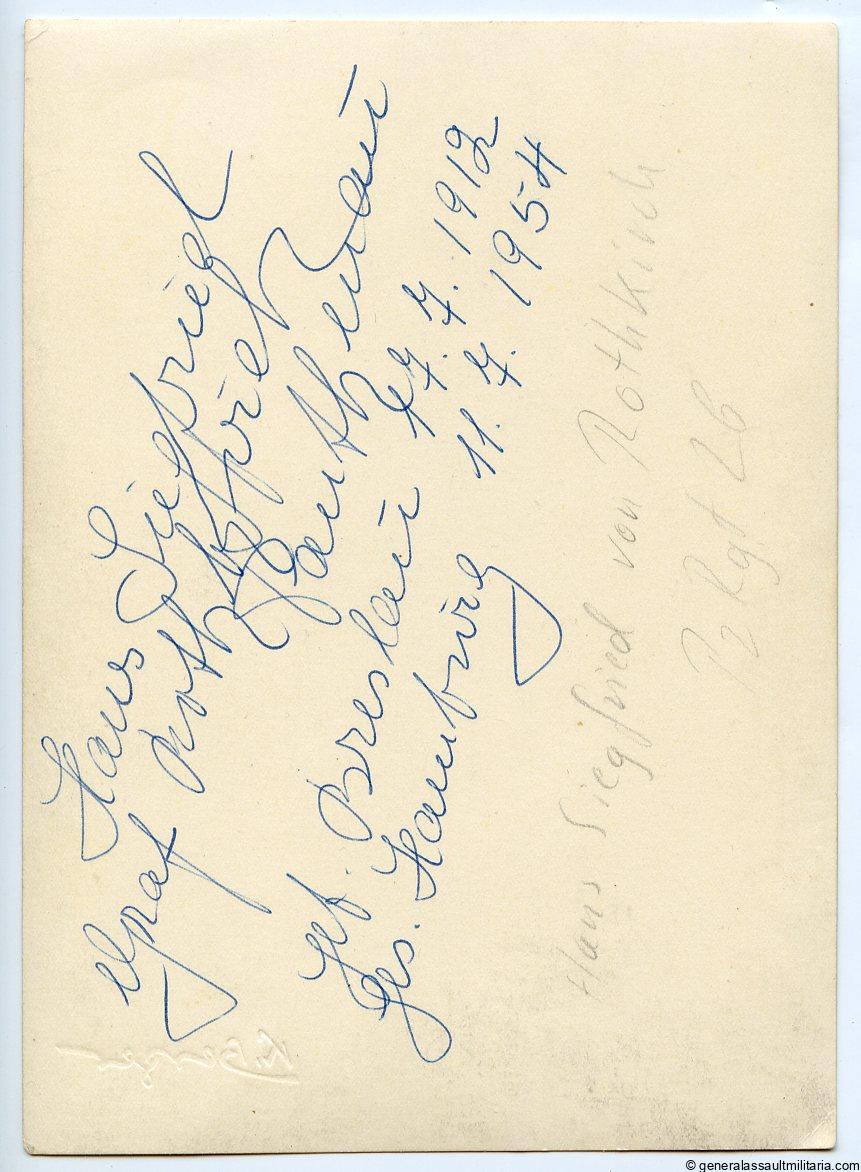 Hans Siegfried
Graf
Panthenau
geb. Breslau 17. 7. 1912
ges. Hamburg 11. 7. 1954
Hans Siegfried von Rothkirch
Pz Rgt 26
K. Berger
© generalassaultmilitaria.com